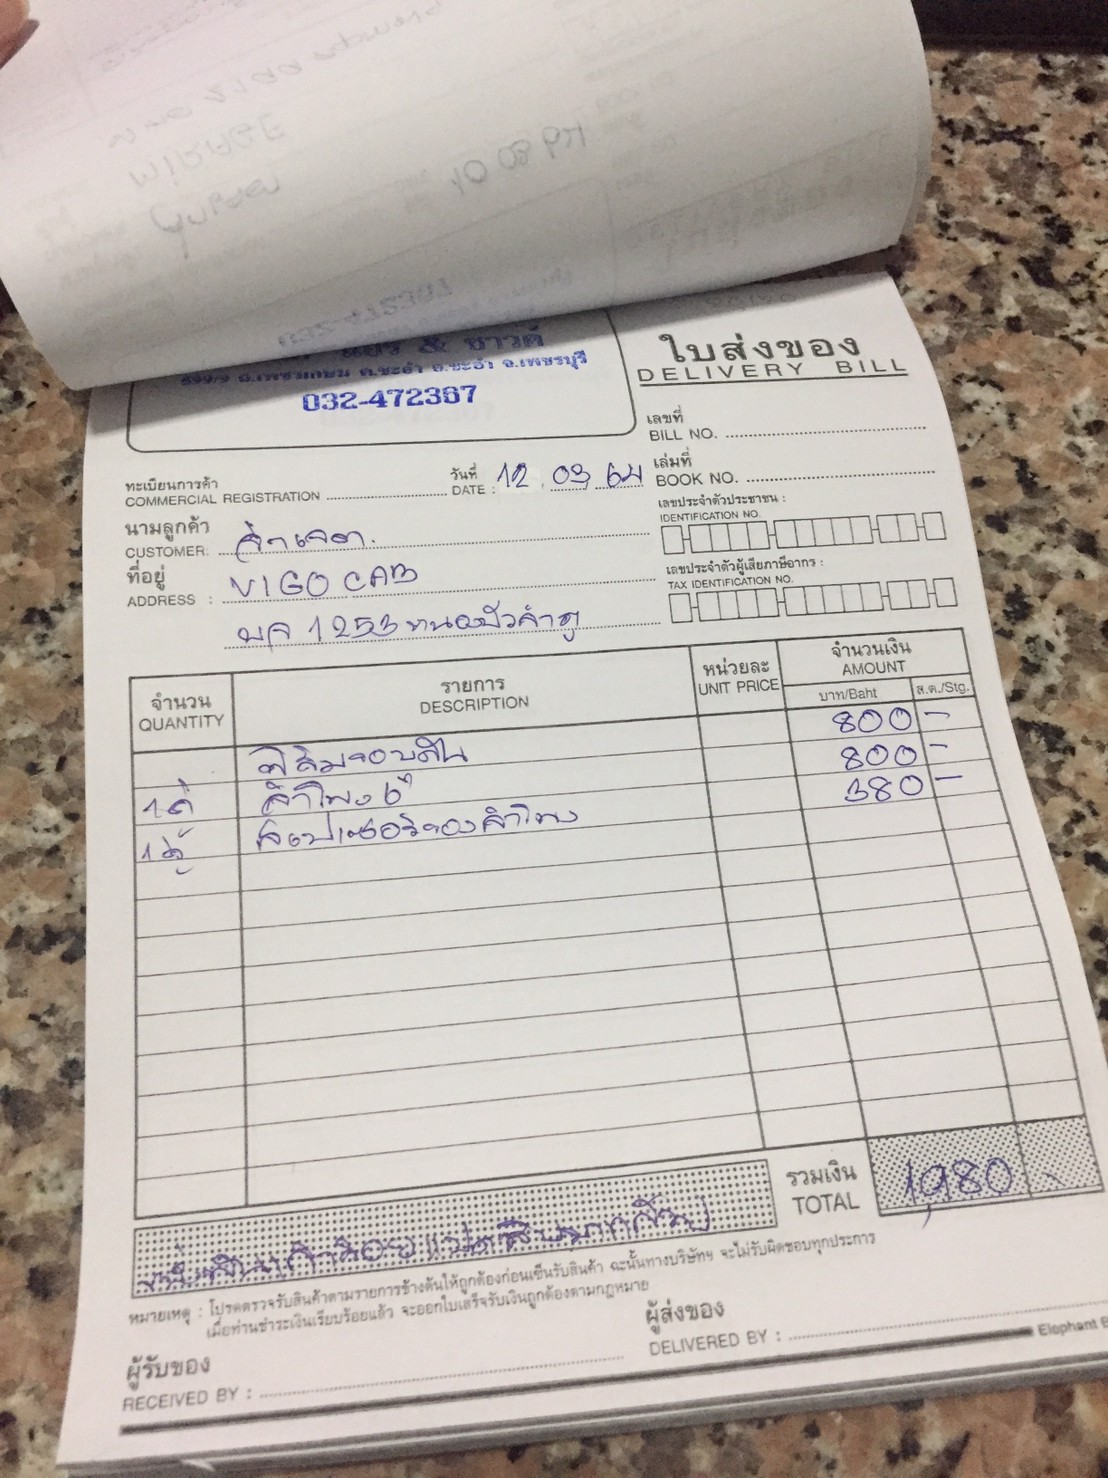 แอร์ & ซาวด์
899/9 ถ.เพชรเกษม ต.ชะอำ อ.ชะอำ จ.เพชรบุรี
032-472367
ใบส่งของ
DELIVERY BILL
เลขที่
BILL NO.
ทะเบียนการค้า
COMMERCIAL REGISTRATION
วันที่
DATE : 12 03 64
เล่มที่
BOOK NO.
เลขประจำตัวประชาชน :
IDENTIFICATION NO.
นามลูกค้า
CUSTOMER:
ที่อยู่
ADDRESS : VIGO CAB
เลขประจำตัวผู้เสียภาษีอากร :
TAX IDENTIFICATION NO.
1253
จำนวน
QUANTITY
รายการ
DESCRIPTION
หน่วยละ
UNIT PRICE
จำนวนเงิน
AMOUNT
บาท/Baht ส.ต./Stg.
ฟิล์มรอบคัน 800 -
1 คู่ ลำโพง 6" 800 -
1 คู่ สเปเซอร์รองลำโพง 380 -
รวมเงิน
TOTAL 1,980
แปดสิบบาทถ้วน
หมายเหตุ : โปรดตรวจรับสินค้าตามรายการข้างต้นให้ถูกต้องก่อนเซ็นรับสินค้า ฉะนั้นทางบริษัทฯ จะไม่รับผิดชอบทุกประการ
เมื่อท่านชำระเงินเรียบร้อยแล้ว จะออกใบเสร็จรับเงินถูกต้องตามกฎหมาย
ผู้รับของ
RECEIVED BY :
ผู้ส่งของ
DELIVERED BY :
Elephant B